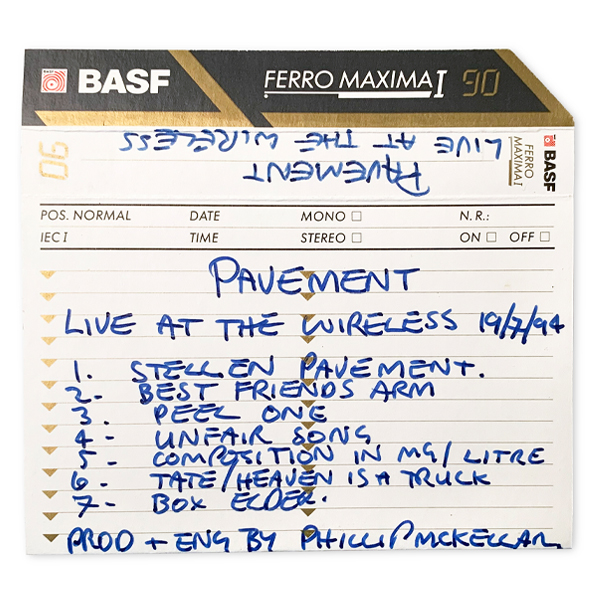 BASF FERRO MAXIMA I 90
LIVE AT THE WIRELESS
PAVEMENT
90
BASF
FERRO
MAXIMA I
POS. NORMAL DATE MONO N.R.:
IEC I TIME STEREO ON OFF
PAVEMENT
LIVE AT THE WIRELESS 19/7/94
1. STELLEN PAVEMENT.
2- BEST FRIENDS ARM
3. PEEL ONE
4- UNFAIR SONG
5- COMPOSITION IN MG/LITRE
6- TATE/HEAVEN IS A TRUCK
7- BOX ELDER.
PROD + ENG BY PHILLIP MCKELLAR